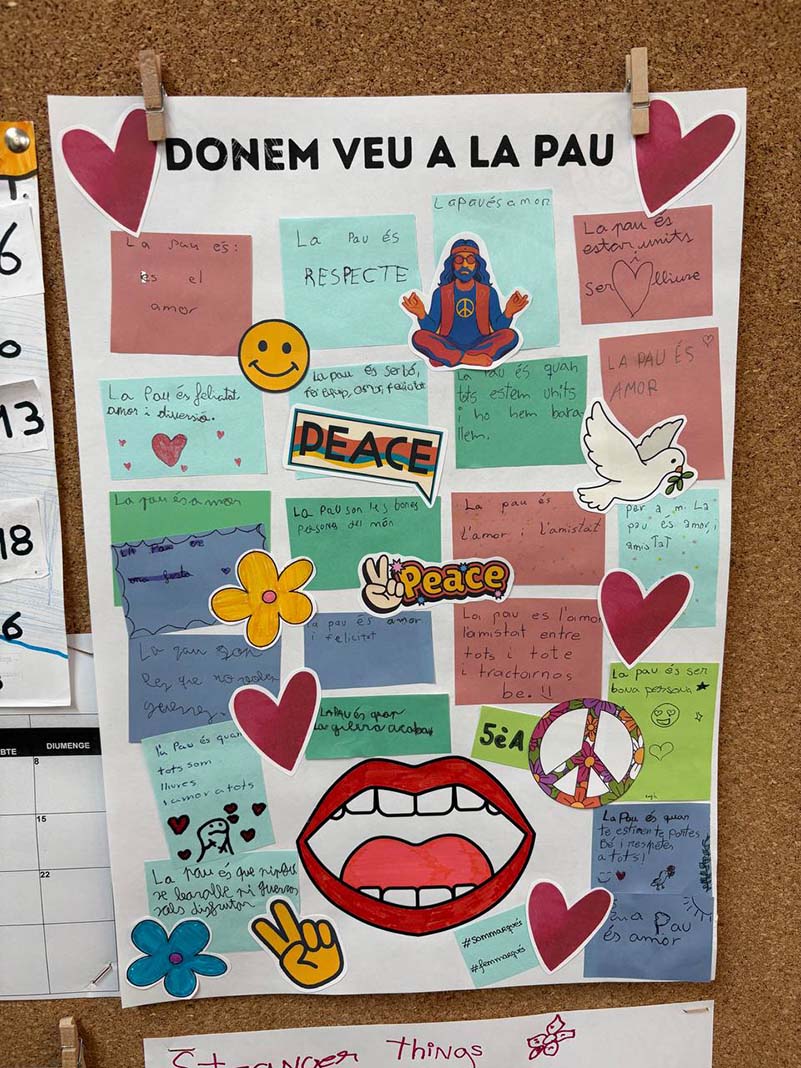 DONEM VEU A LA PAU
La pau és:
és el
amor
La Pau és
RESPECTE
La pau és amor
La pau és
estar units
i
ser lliure
La Pau és felicitat
amor i diversió.
La pau és ser bo,
amor, felicitat
La Pau és quan
tots estem units
i ho hem bara
llem.
LA PAU ÉS
AMOR
PEACE
La pau és amor
La Pau son les bones
persones del món
La pau és
l'amor i l'amistat
per a mi La
pau és amor i
amistat
La Pau és
una
Peace
La pau son
les que no volen
guerres.
La pau és amor
i felicitat
La pau es l'amor
l'amistat entre
tots i tote
i tractarnos
be.!!
La pau és ser
bona persona
La Pau és quan
la guerra acaba
5èA
La Pau és quan
tots som
lliures
i amor a tots
La Pau és quan
te estimen te portes
Bé i respetes
a tots!
La Pau és que ningú
se baralle ni guerres
sals disfrutar
#sommarqués
#femmarqués
Pau
és amor
6
13
18
6
BTE DIUMENGE
8
15
22
Stranger Things